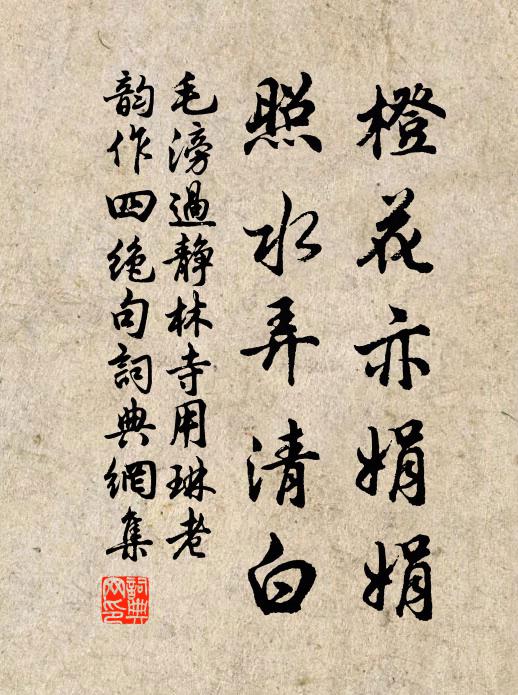 橙花亦娟娟
照水弄清白
毛滂過静林寺用琳老
韵作四絶句詞典網集
詞典网印